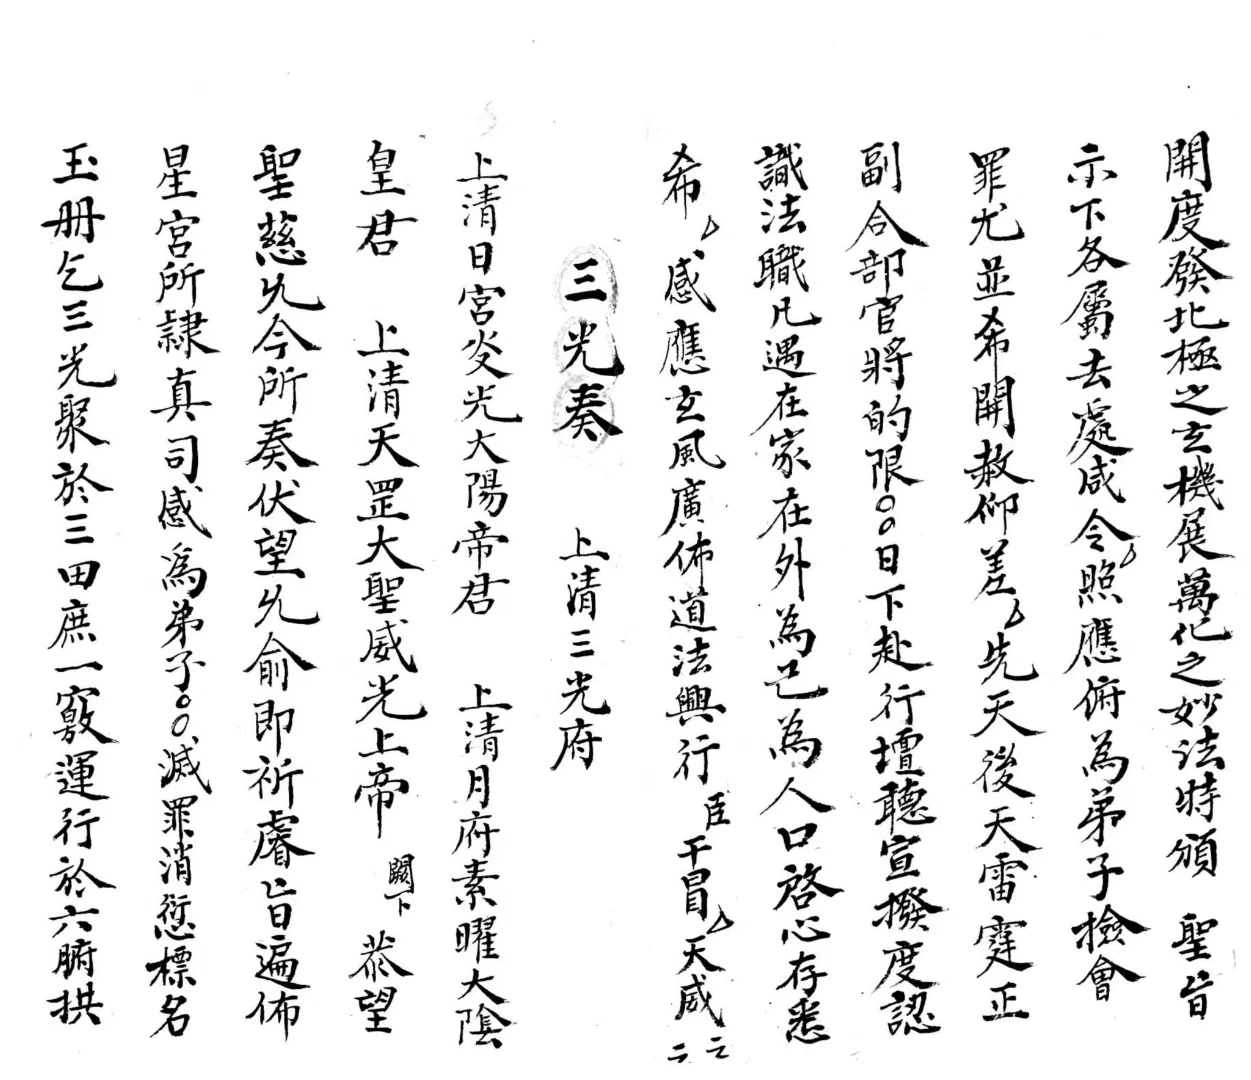 開度發北極之玄機展萬化之妙法特頒　聖旨
示下各屬去處咸令照應俯為弟子撿會
罪尤並希開赦仰差先天後天雷霆正
副合部官將的限○○日下赴行壇聽宣撥度認
識法職凡遇在家在外為己為人口啓心存悉
希感應玄風廣佈道法興行臣干冒天威 云云
三光奏　上清三光府
上清日宮炎光大陽帝君　上清月府素曜大陰
皇君　上清天罡大聖威光上帝 闕下 恭望
聖慈允今所奏伏望允俞即祈睿旨遍佈
星宮所隷真司感為弟子○○滅罪消愆標名
玉冊乞三光聚於三田庶一竅運行於六腑拱